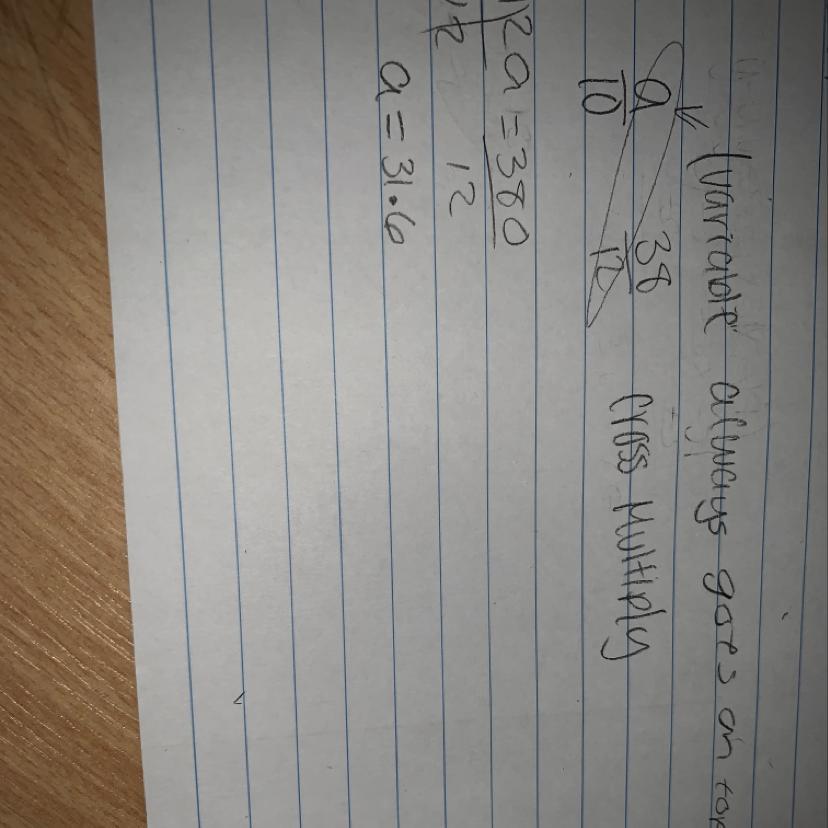 (variable always goes on top
a 38
10 12 Cross Multiply
12a = 380
12 12
a = 31.6